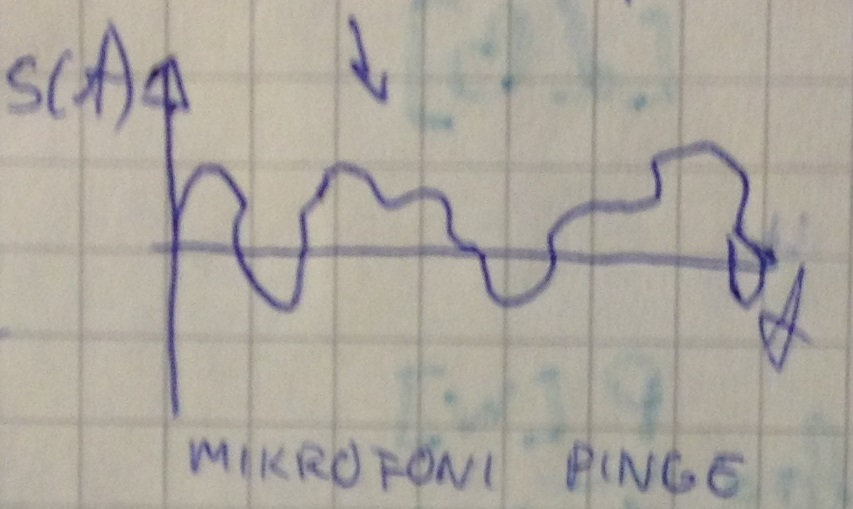 S(t)
t
MIKROFONI PINGE